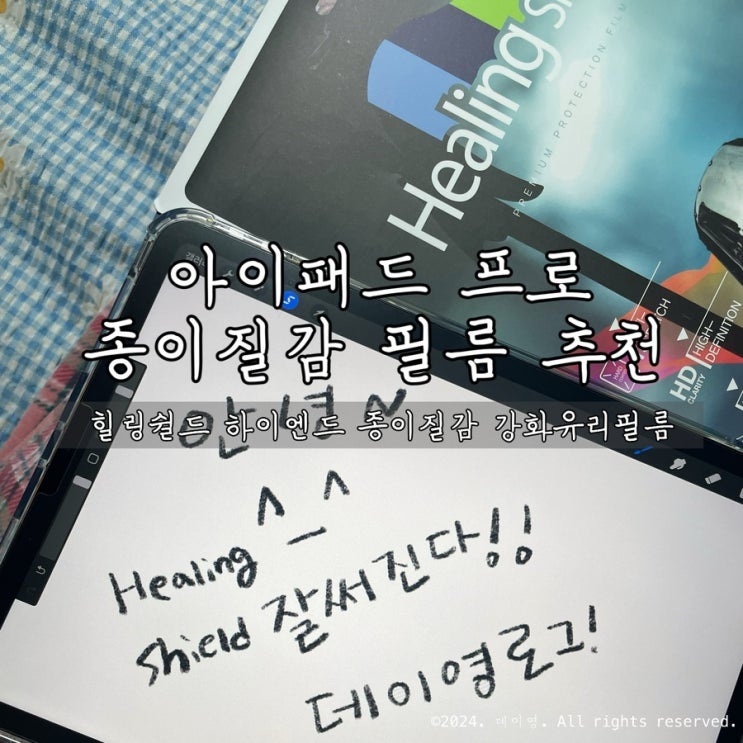 Healing
PREMIUM PROTECTION FILM
HD
CLARITY
HIGH-
DEFINITION
아이패드 프로
종이질감 필름 추천
힐링쉴드 하이엔드 종이질감 강화유리필름
안녕~
^_^
Healing
shield 잘써진다!!
데이영로그!
©2024. 데이영. All rights reserved.